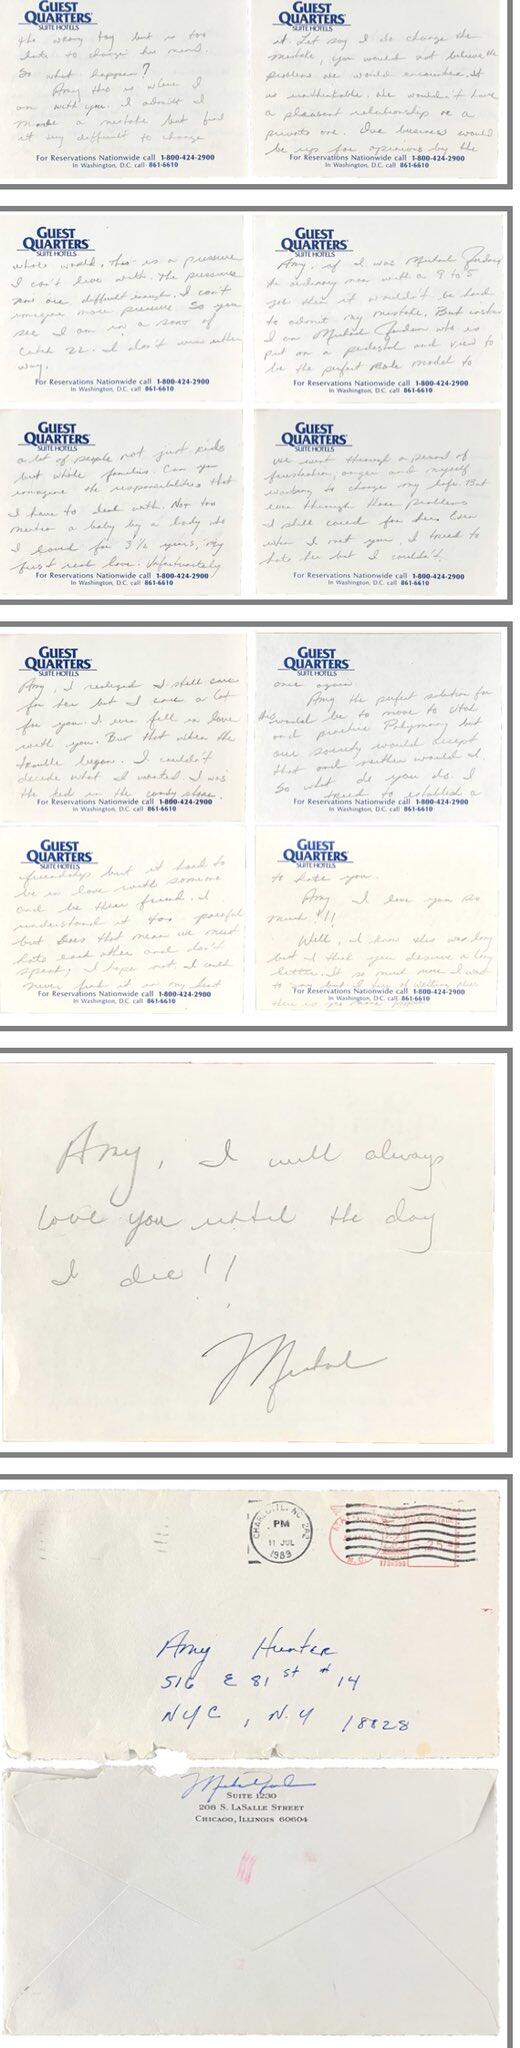 GUEST
QUARTERS
SUITE HOTELS
the wrong toy but is too
late to change his mind.
So what happen?
Amy this is where I
am with you. I admit I
made a mistake but find
it very difficult to change
For Reservations Nationwide call 1-800-424-2900
In Washington, D.C. call 861-6610
GUEST
QUARTERS
SUITE HOTELS
it. Let say I do change the
mistake, you would not believe the
problems we would encounter. It
is unthinkable. We wouldn't have
a pleasant relationship or a
private one. Our business would
be up for opinions by the
For Reservations Nationwide call 1-800-424-2900
In Washington, D.C. call 861-6610
GUEST
QUARTERS
SUITE HOTELS
whole world. This is a pressure
I can't live with. The pressures
now are difficult enough. I can't
imagine more pressure. So you
see I am in a sort of
Catch 22. I don't win either
way.
For Reservations Nationwide call 1-800-424-2900
In Washington, D.C. call 861-6610
GUEST
QUARTERS
SUITE HOTELS
Amy, if I was Michael Jordan
the ordinary man with a 9 to 5
job then it wouldn't be hard
to admit my mistake. But instead
I am Michael Jordan who is
put on a pedestal and view to
be the perfect role model to
For Reservations Nationwide call 1-800-424-2900
In Washington, D.C. call 861-6610
GUEST
QUARTERS
SUITE HOTELS
a lot of people not just kids
but whole families. Can you
imagine the responsibilities that
I have to deal with. Not too
mention a baby by a lady who
I loved for 3 1/2 years, my
first real love. Unfortunately
For Reservations Nationwide call 1-800-424-2900
In Washington, D.C. call 861-6610
GUEST
QUARTERS
SUITE HOTELS
we went through a period of
frustration, anger and myself
wanting to change my life. But
even through those problems
I still cared for her. Even
when I met you, I tried to
hate her but I couldn't.
For Reservations Nationwide call 1-800-424-2900
In Washington, D.C. call 861-6610
GUEST
QUARTERS
SUITE HOTELS
Amy, I realized I still care
for her but I care a lot
for you. I even fell in love
with you. But that when the
trouble began. I couldn't
decide what I wanted. I was
the kid in the candy store
For Reservations Nationwide call 1-800-424-2900
In Washington, D.C. call 861-6610
GUEST
QUARTERS
SUITE HOTELS
once again.
Amy the perfect solution for
this would be to move to Utah
and practice Polygmany but
our society would accept
that and neither would I.
So what do you do. I
tried to established a
For Reservations Nationwide call 1-800-424-2900
In Washington, D.C. call 861-6610
GUEST
QUARTERS
SUITE HOTELS
friendship but it hard to
be in love with someone
and be their friend. I
understand it too painful
but does that mean we must
hate each other and don't
speak, I hope not. I could
never find it in my heart
For Reservations Nationwide call 1-800-424-2900
In Washington, D.C. call 861-6610
GUEST
QUARTERS
SUITE HOTELS
to hate you.
Amy I love you so
much !!!
Well, I know this was long
but I think you deserve a long
letter. It so much more I want
to say but I
For Reservations Nationwide call 1-800-424-2900
In Washington, D.C. call 861-6610
Amy, I will always
love you until the day
I die!!
Michael
CHARLOTTE, NC 282
PM
11 JUL
1989
Amy Hunter
516 E 81st #14
NYC, N.Y 18028
Michael Jordan
SUITE 1230
208 S. LASALLE STREET
CHICAGO, ILLINOIS 60604